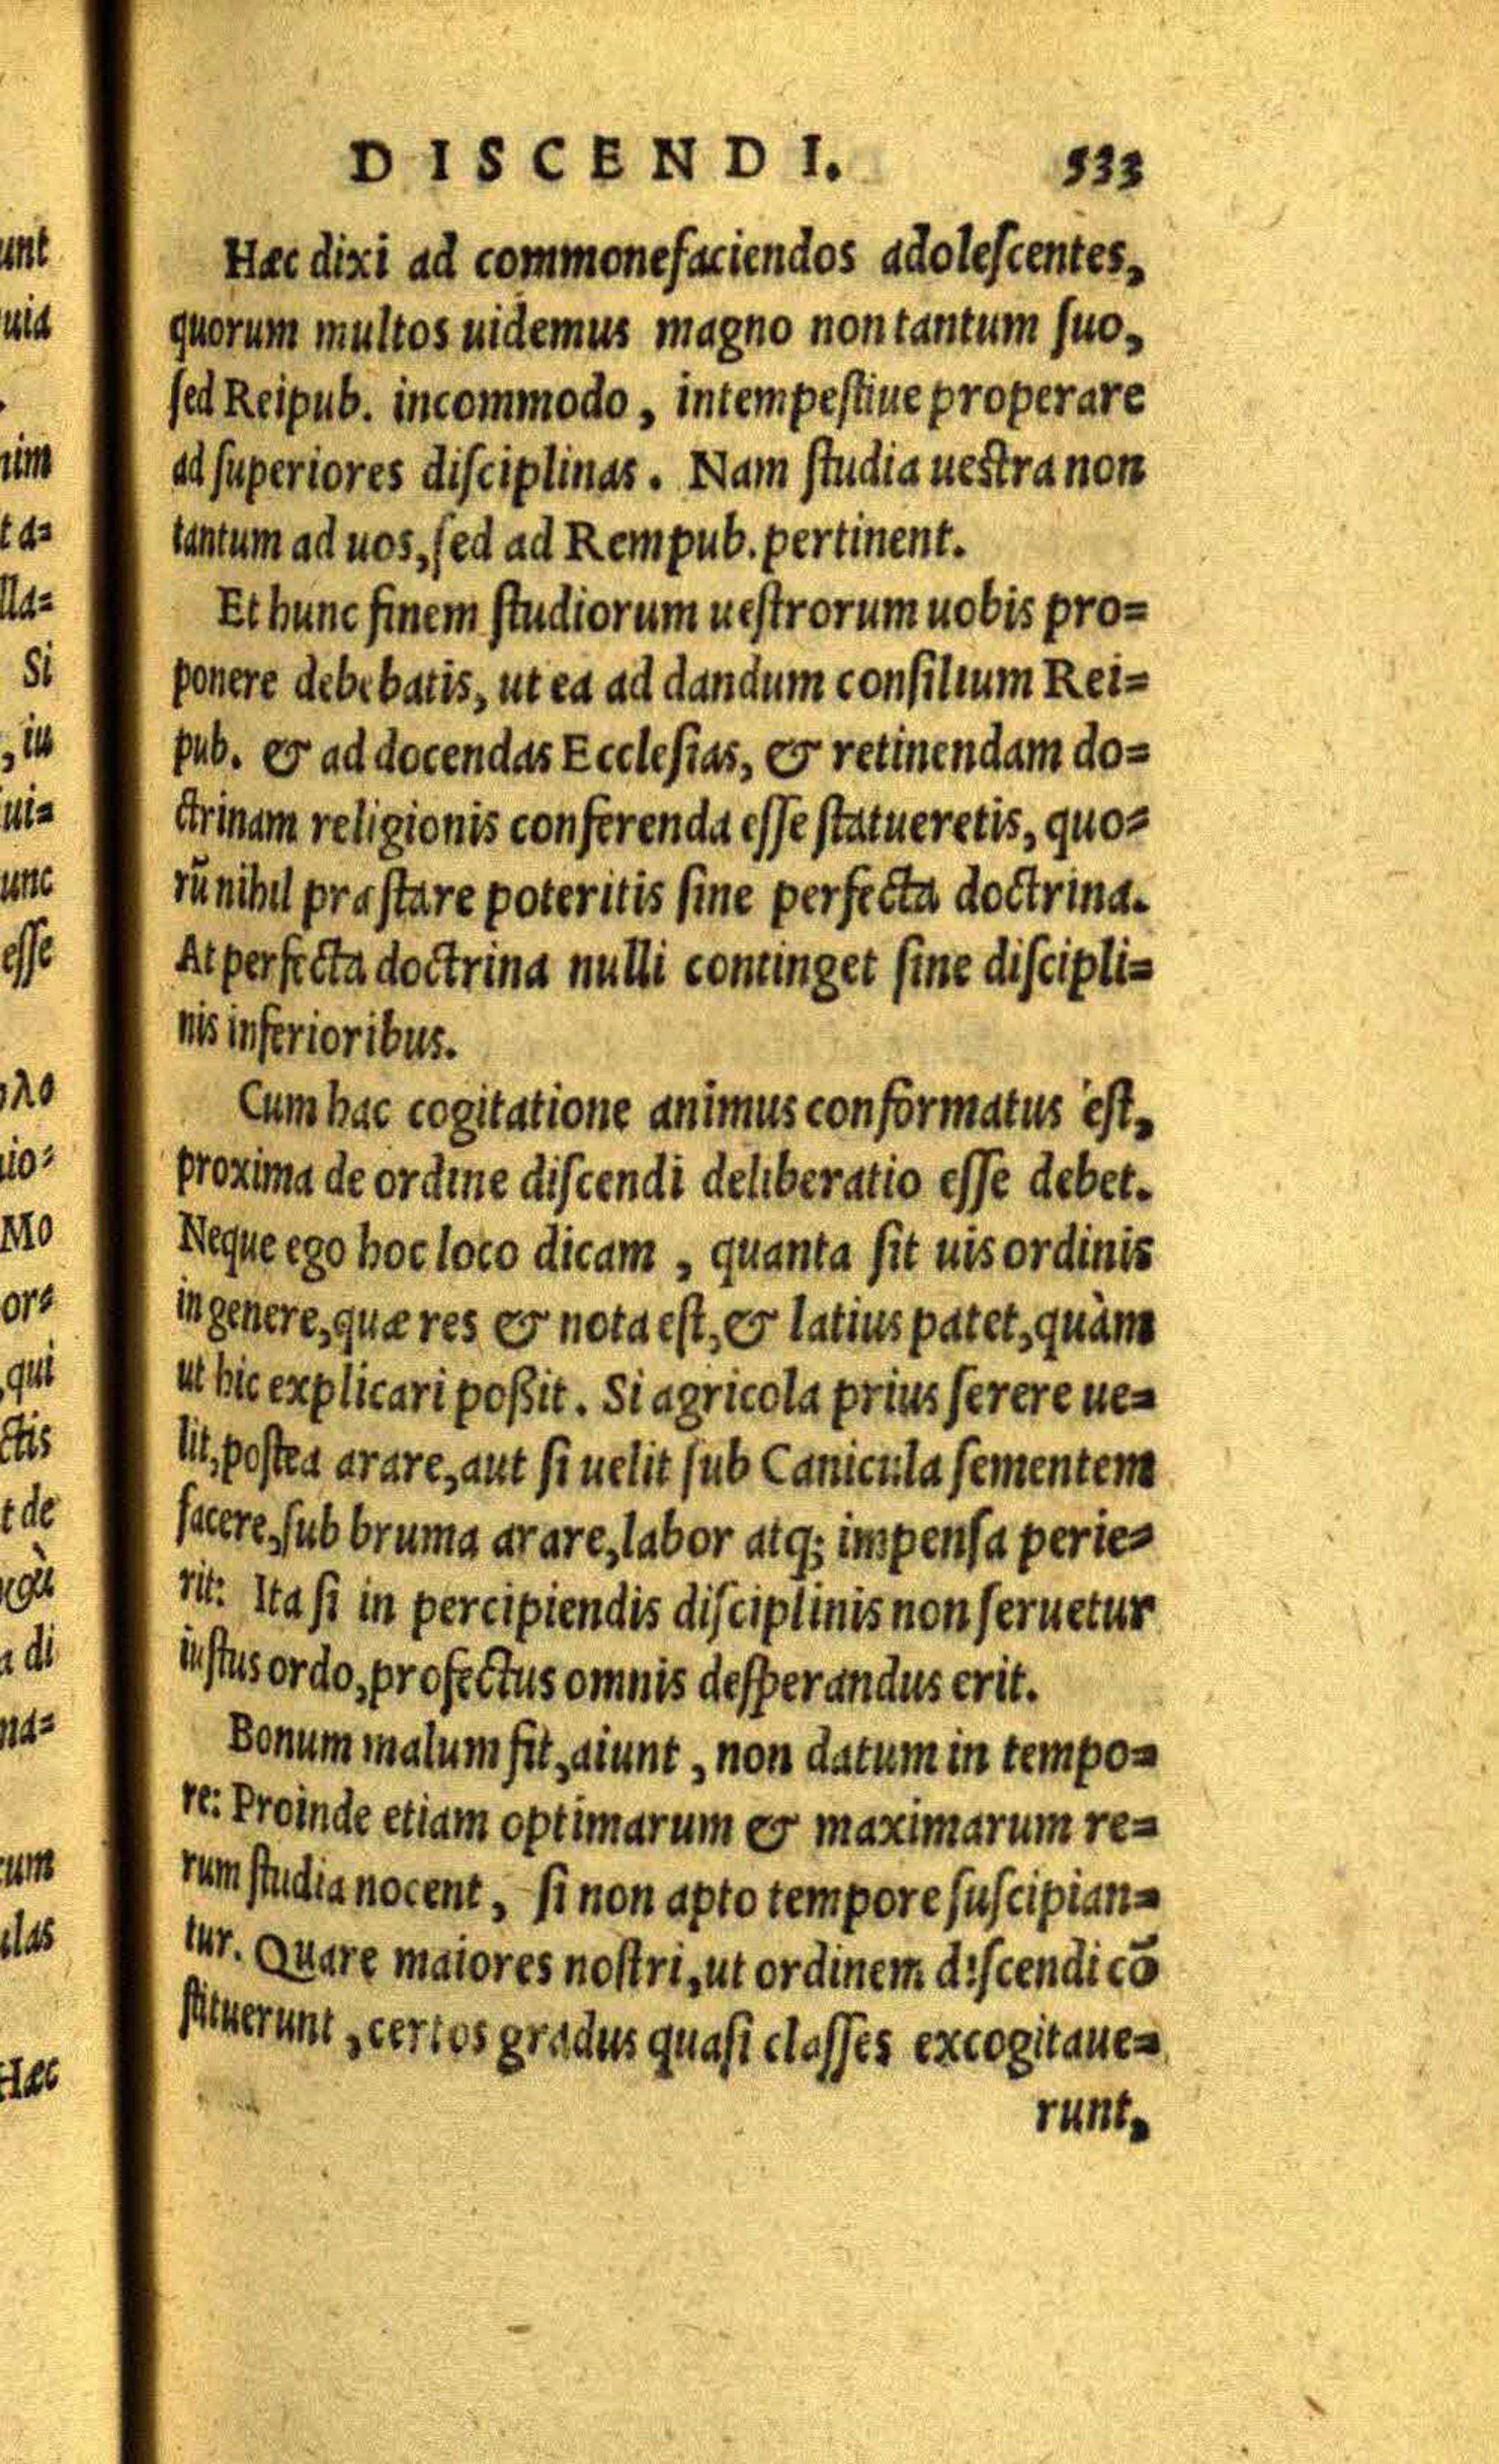 DISCENDI. 533
Hæc dixi ad commonefaciendos adoleſcentes,
quorum multos uidemus magno non tantum ſuo,
ſed Reipub. incommodo, intempeſtiue properare
ad ſuperiores diſciplinas. Nam ſtudia ueſtra non
tantum ad uos, ſed ad Rempub. pertinent.
Et hunc finem ſtudiorum ueſtrorum uobis pro=
ponere debebatis, ut ea ad dandum conſilium Rei=
pub. & ad docendas Eccleſias, & retinendam do=
ctrinam religionis conferenda eſſe ſtatueretis, quo=
rū nihil præſtare poteritis ſine perfecta doctrina.
At perfecta doctrina nulli continget ſine diſcipli=
nis inferioribus.
Cum hac cogitatione animus conformatus eſt,
proxima de ordine diſcendi deliberatio eſſe debet.
Neque ego hoc loco dicam, quanta ſit uis ordinis
in genere, quæ res & nota eſt, & latius patet, quàm
ut hic explicari poßit. Si agricola prius ſerere ue=
lit, poſtea arare, aut ſi uelit ſub Canicula ſementem
facere, ſub bruma arare, labor atq; impenſa perie=
rit: Ita ſi in percipiendis diſciplinis non ſeruetur
iuſtus ordo, profectus omnis deſperandus erit.
Bonum malum fit, aiunt, non datum in tempo=
re: Proinde etiam optimarum & maximarum re=
rum ſtudia nocent, ſi non apto tempore ſuſcipian=
tur. Quare maiores noſtri, ut ordinem diſcendi cō
ſtituerunt, certos gradus quaſi claſſes excogitaue=
runt,